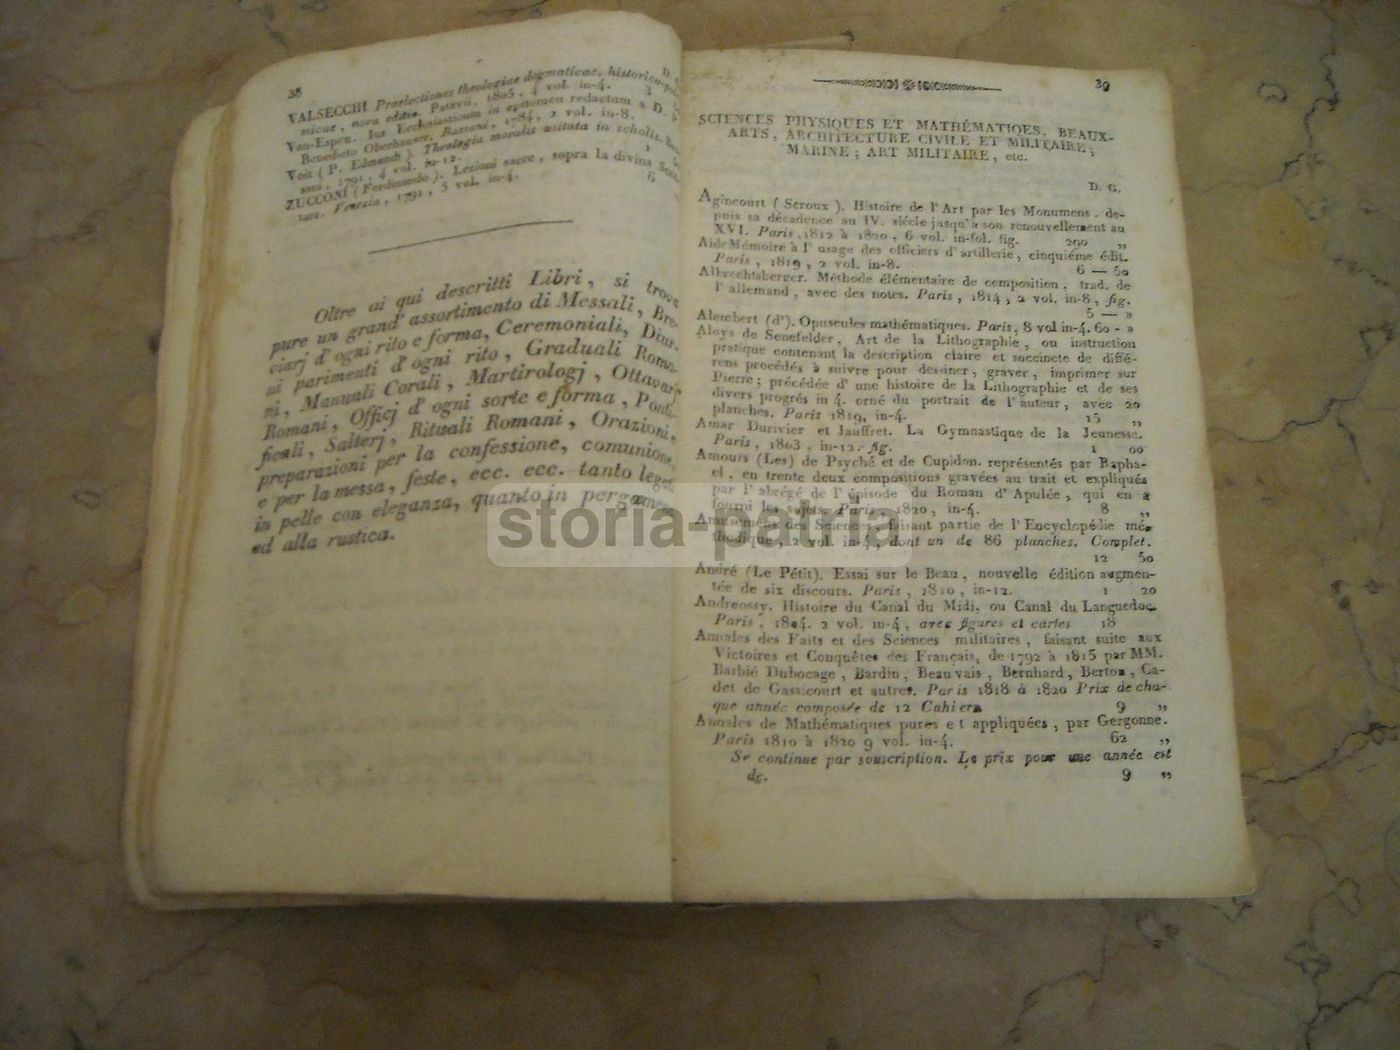 38
D.
VALSECCHI Praelectiones theologiae dogmaticae, historico-
micae, nova editio. Patavii, 1805, 4 vol. in-4. 3
Van-Espen. Jus Ecclesiasticum in epitomen redactum a D.
Benedicto Oberhauser. Bassani, 1784, 2 vol. in-8.
Voit (P. Edmundi). Theologia moralis usitata in scholis.
sani, 1791, 4 vol. in-12. 1
ZUCCONI (Ferdinando). Lezioni sacre, sopra la divina
tura. Venezia, 1791, 5 vol. in-4. 6
Oltre ai qui descritti Libri, si trova
pure un grand' assortimento di Messali, Bre-
viarj d' ogni rito e forma, Ceremoniali, Diur-
ni parimenti d' ogni rito, Graduali Roma-
ni, Manuali Corali, Martirologj, Ottavarj
Romani, Officj d' ogni sorte e forma, Ponti-
ficali, Salterj, Rituali Romani, Orazioni,
preparazioni per la confessione, comunione,
e per la messa, feste, ecc. ecc. tanto legati
in pelle con eleganza, quanto in pergamena
ed alla rustica.
39
SCIENCES PHYSIQUES ET MATHÉMATIQES, BEAUX-
ARTS, ARCHITECTURE CIVILE ET MILITAIRE;
MARINE; ART MILITAIRE, etc.
D. G.
Agincourt (Seroux). Histoire de l'Art par les Monumens, de-
puis sa décadence au IV. siécle jusqu'à son renouvellement au
XVI. Paris, 1812 à 1820, 6 vol. in-fol. fig. 290 „
Aide Mémoire à l' usage des officiers d'artillerie, cinquiéme édit.
Paris, 1819, 2 vol. in-8. 6 — 50
Albrechtsberger. Méthode élémentaire de composition, trad. de
l' allemand, avec des notes. Paris, 1814, 2 vol. in-8, fig.
5 — „
Alembert (d'). Opuscules mathématiques. Paris, 8 vol in-4. 60 - „
Aloys de Senefelder, Art de la Lithographie, ou instruction
pratique contenant la description claire et succincte de diffé-
rens procédés à suivre pour dessiner, graver, imprimer sur
Pierre; précédée d' une histoire de la Lithographie et de ses
divers progrés in 4. orné du portrait de l'auteur, avec 20
planches. Paris 1819, in-4. 15 „
Amar Durivier et Jauffret. La Gymnastique de la Jeunesse.
Paris, 1803, in-12. fig. 1 00
Amours (Les) de Psyché et de Cupidon, représentés par Rapha-
el, en trente deux compositions gravées au trait et expliqués
par l'abrégé de l' épisode du Roman d' Apulée, qui en a
fourni les sujets. Paris, 1820, in-4. 8 „
Amusemens des Sciences, faisant partie de l'Encyclopédie mé-
thodique, 2 vol. in-4, dont un de 86 planches. Complet.
12 50
André (Le Pétit). Essai sur le Beau, nouvelle édition augmen-
tée de six discours. Paris, 1810, in-12. 1 20
Andreossy. Histoire du Canal du Midi, ou Canal du Languedoc.
Paris, 1804. 2 vol. in-4, avec figures et cartes 18
Annales des Faits et des Sciences militaires, faisant suite aux
Victoires et Conquêtes des Français, de 1792 à 1815 par MM.
Barbié Dubocage, Bardin, Beauvais, Bernhard, Berton, Ca-
det de Gassicourt et autres. Paris 1818 à 1820 Prix de cha-
que année composée de 12 Cahiers 9 „
Annales de Mathématiques pures et appliquées, par Gergonne.
Paris 1810 à 1820 9 vol. in-4. 62 „
Se continue par souscription. Le prix pour une année est
de. 9 „
storia-patria